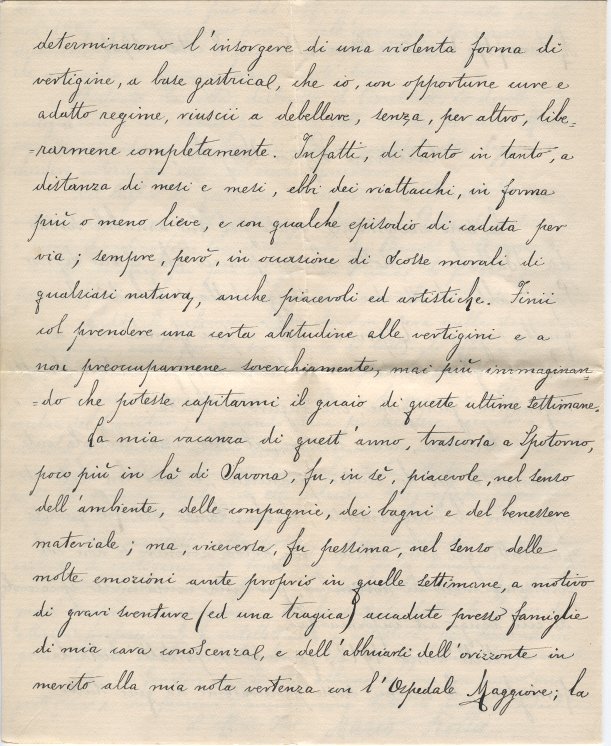 determinarono l'insorgere di una violenta forma di
vertigine, a base gastrica, che io, con opportune cure e
adatto regime, riuscii a debellare, senza, per altro, libe=
=rarmene completamente. Infatti, di tanto in tanto, a
distanza di mesi e mesi, ebbi dei riattacchi, in forma
più o meno lieve, e con qualche episodio di caduta per
via; sempre, però, in occasione di scosse morali di
qualsiasi natura, anche piacevoli ed artistiche. Finii
col prendere una certa abitudine alle vertigini e a
non preoccuparmene soverchiamente, mai più immaginan=
=do che potesse capitarmi il guaio di queste ultime settimane.
La mia vacanza di quest'anno, trascorsa a Spotorno,
poco più in là di Savona, fu, in sè, piacevole, nel senso
dell'ambiente, delle compagnie, dei bagni e del benessere
materiale; ma, viceversa, fu pessima, nel senso delle
molte emozioni avute proprio in quelle settimane, a motivo
di gravi sventure (ed una tragica) accadute presso famiglie
di mia cara conoscenza, e dell'abbuiarsi dell'orizzonte in
merito alla mia nota vertenza con l'Ospedale Maggiore; la